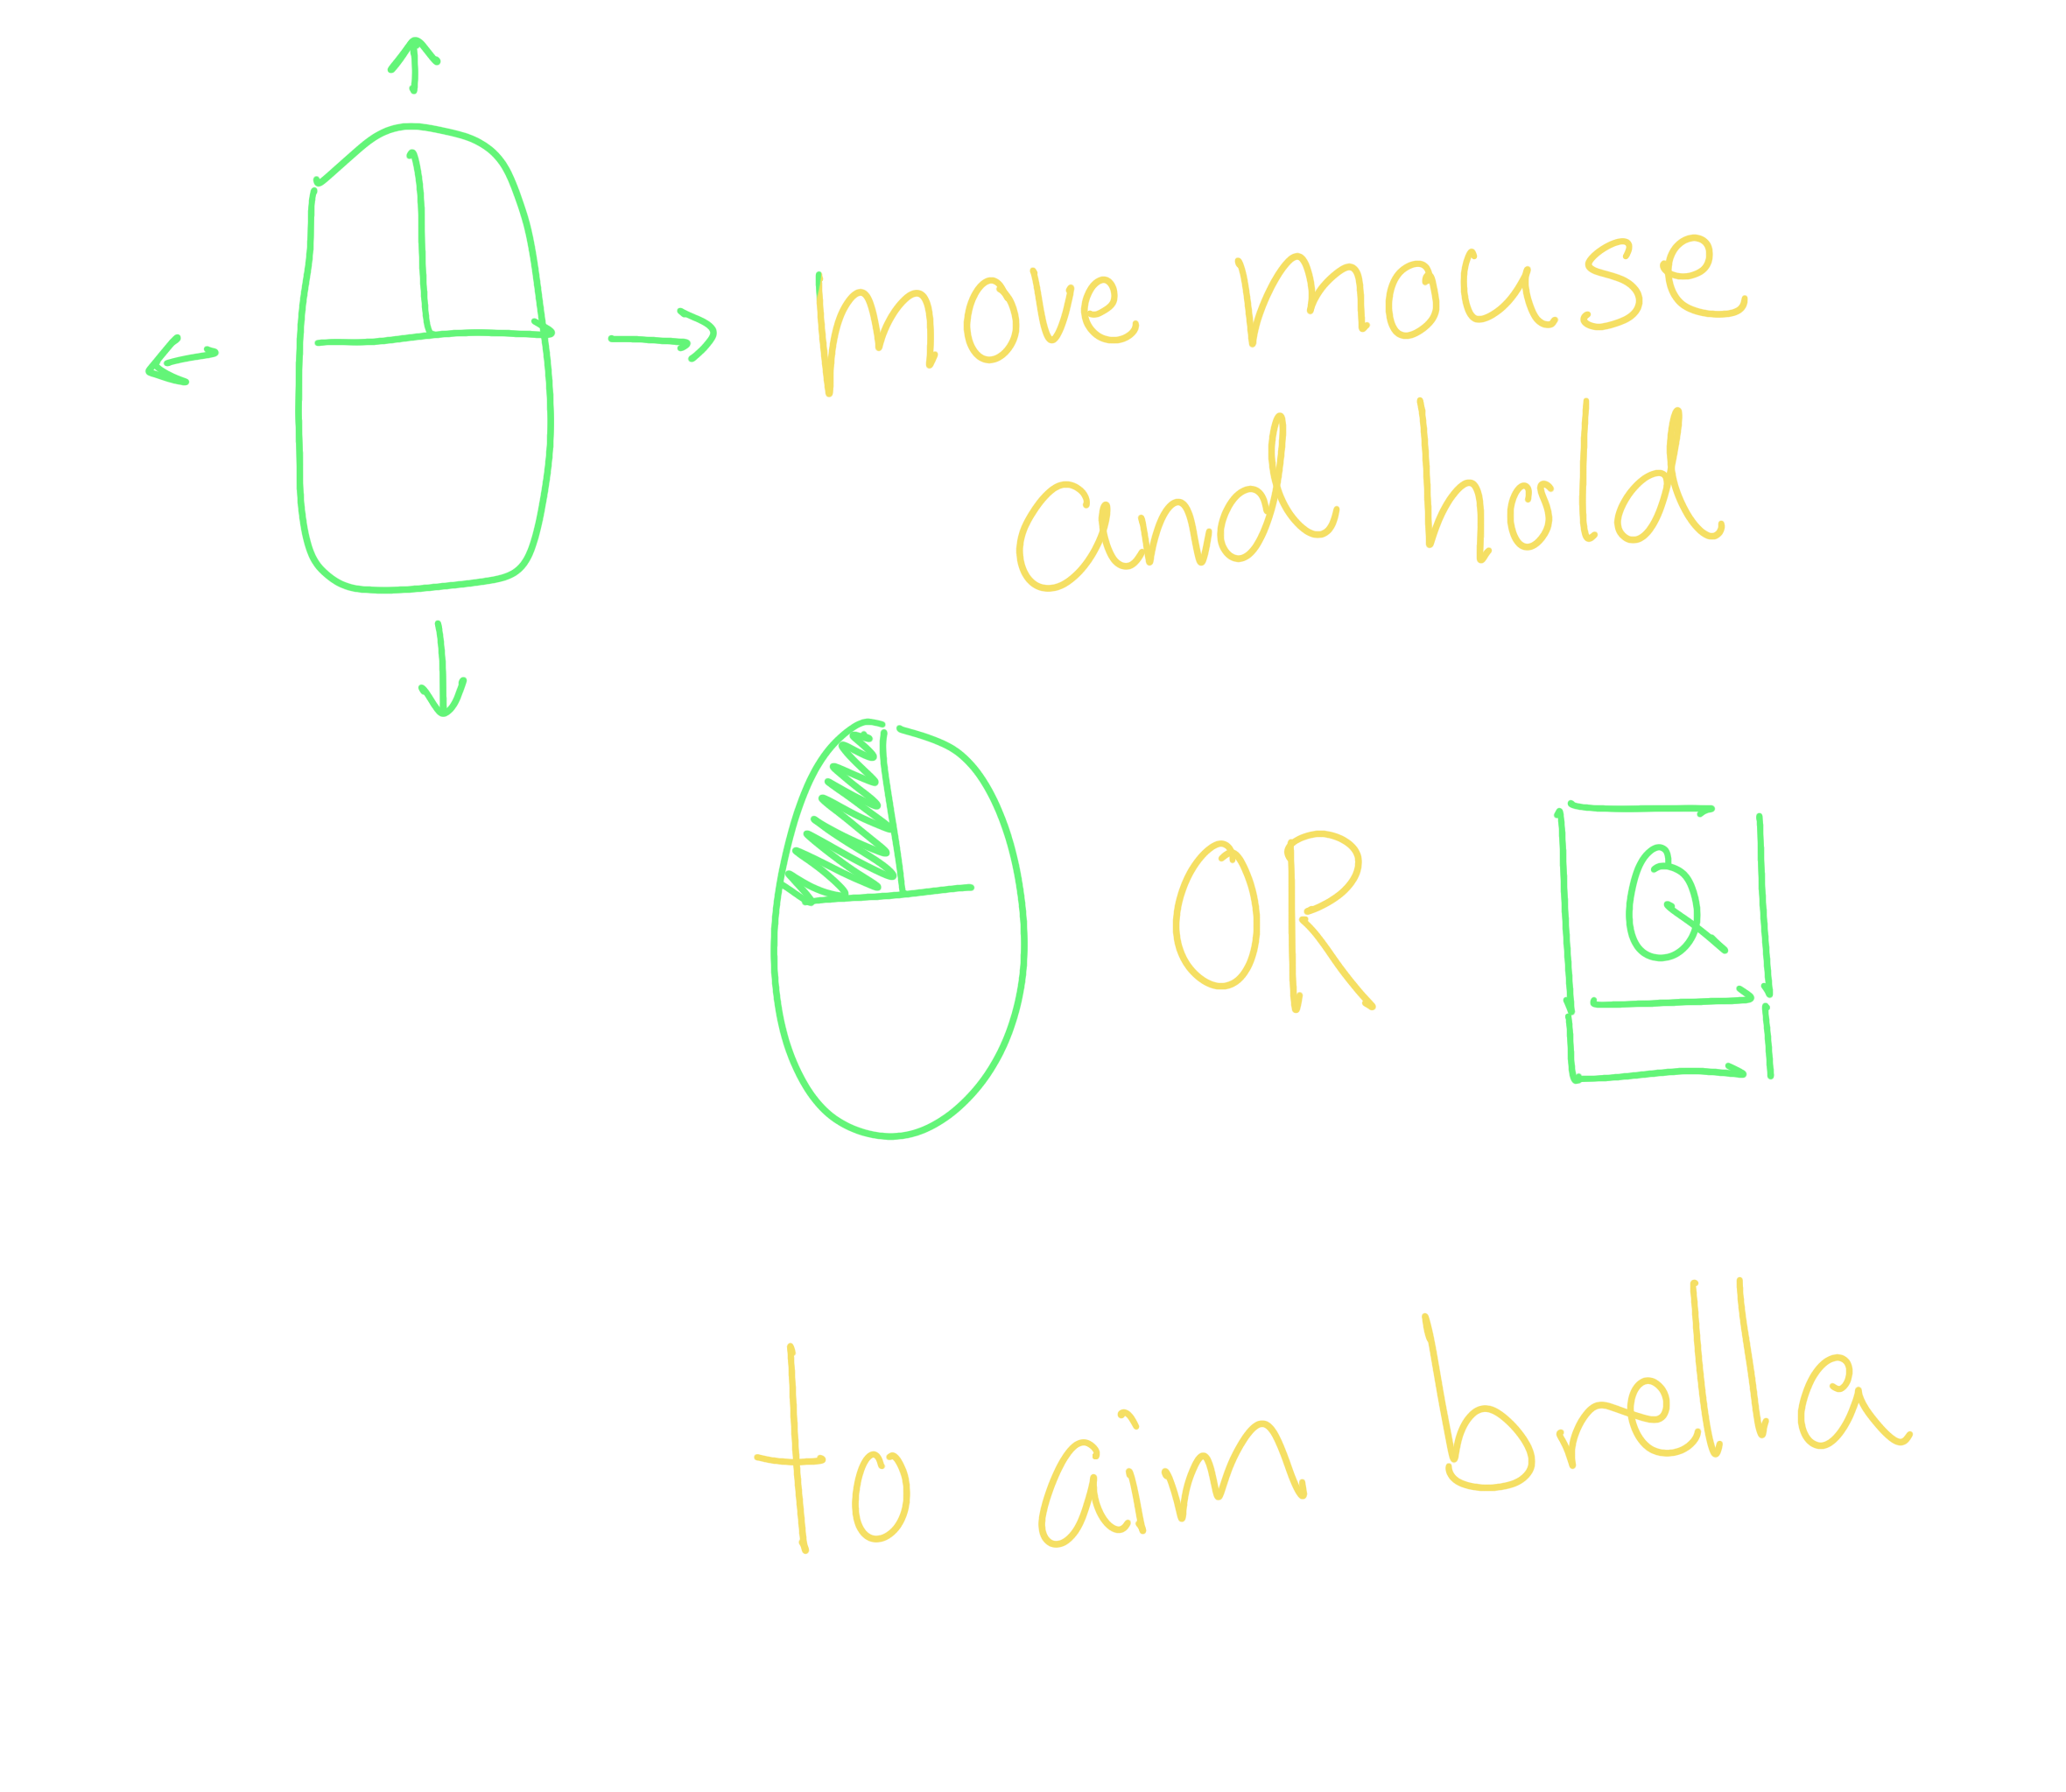 move mouse
and hold
OR Q
to aim brella